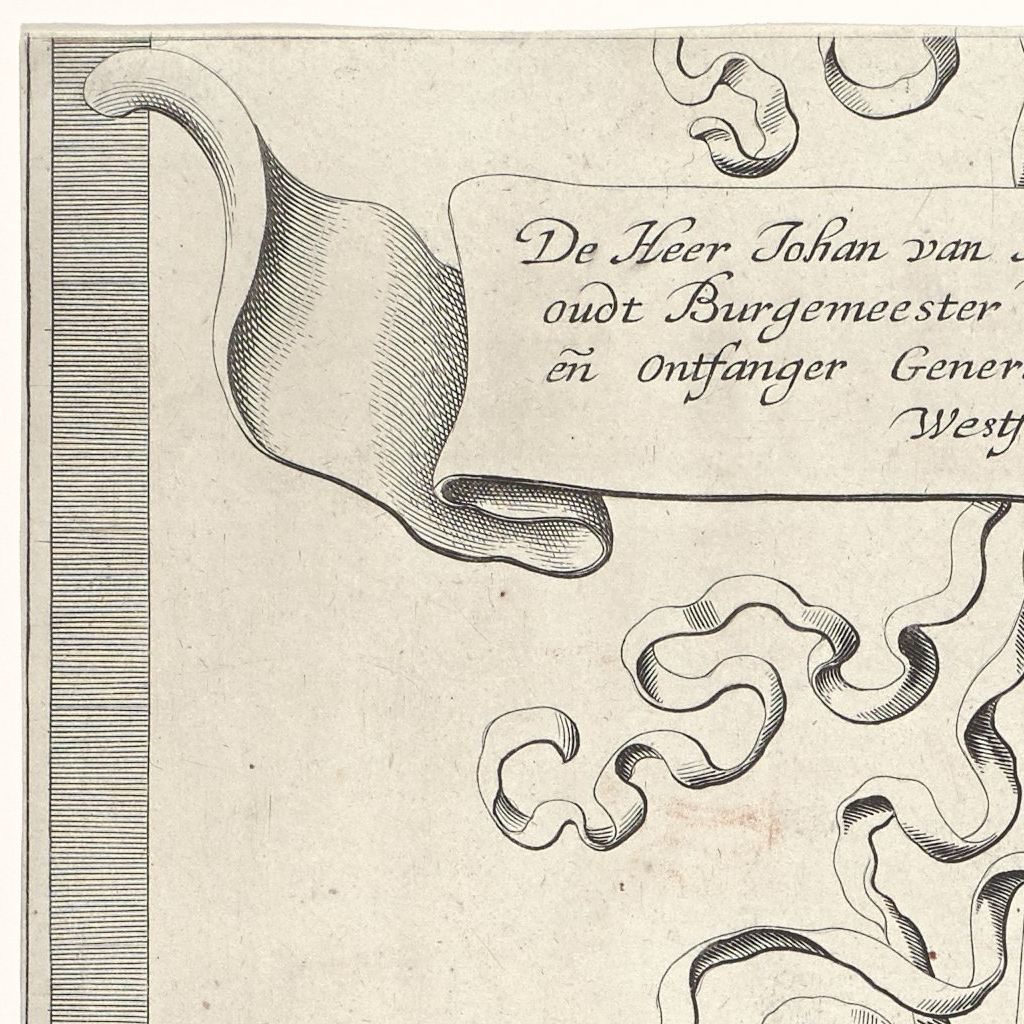 De Heer Johan van
oudt Burgemeester
eñ Ontfanger Gener
Westf